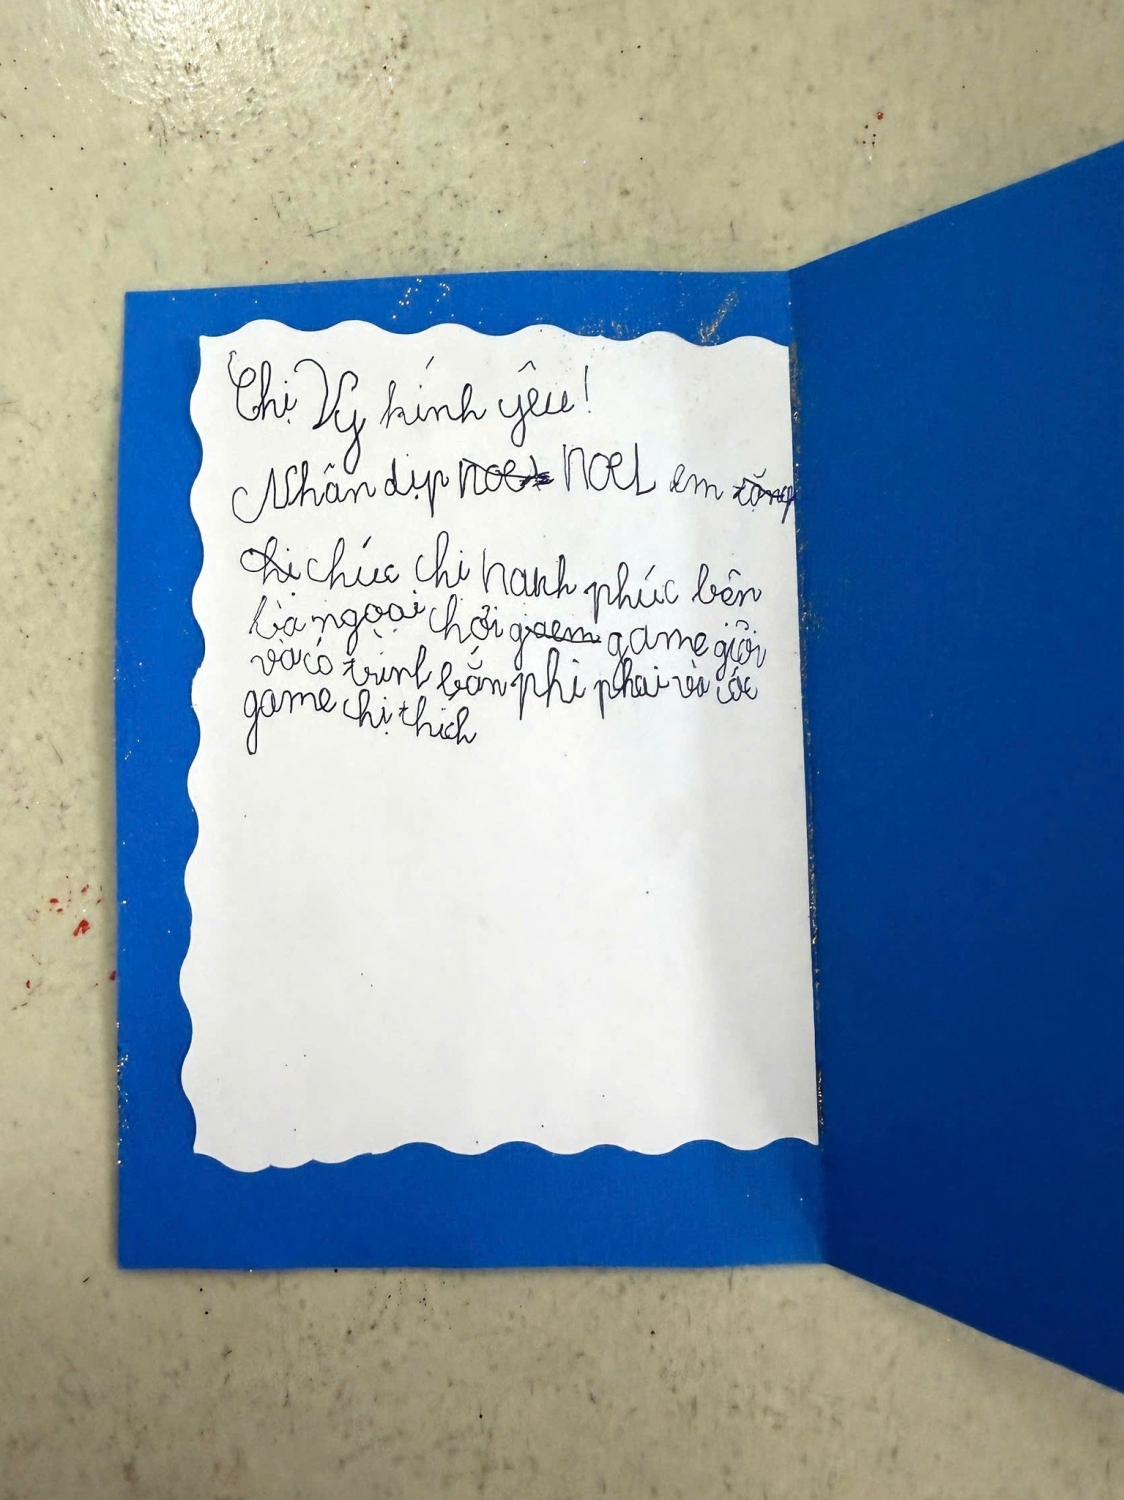 Chị Vy kính yêu!
Nhân dịp NOEL em
chúc chị hanh phúc bên
bà ngoại chơi game giỏi
và có trình bắn phi phai và các
game chị thích